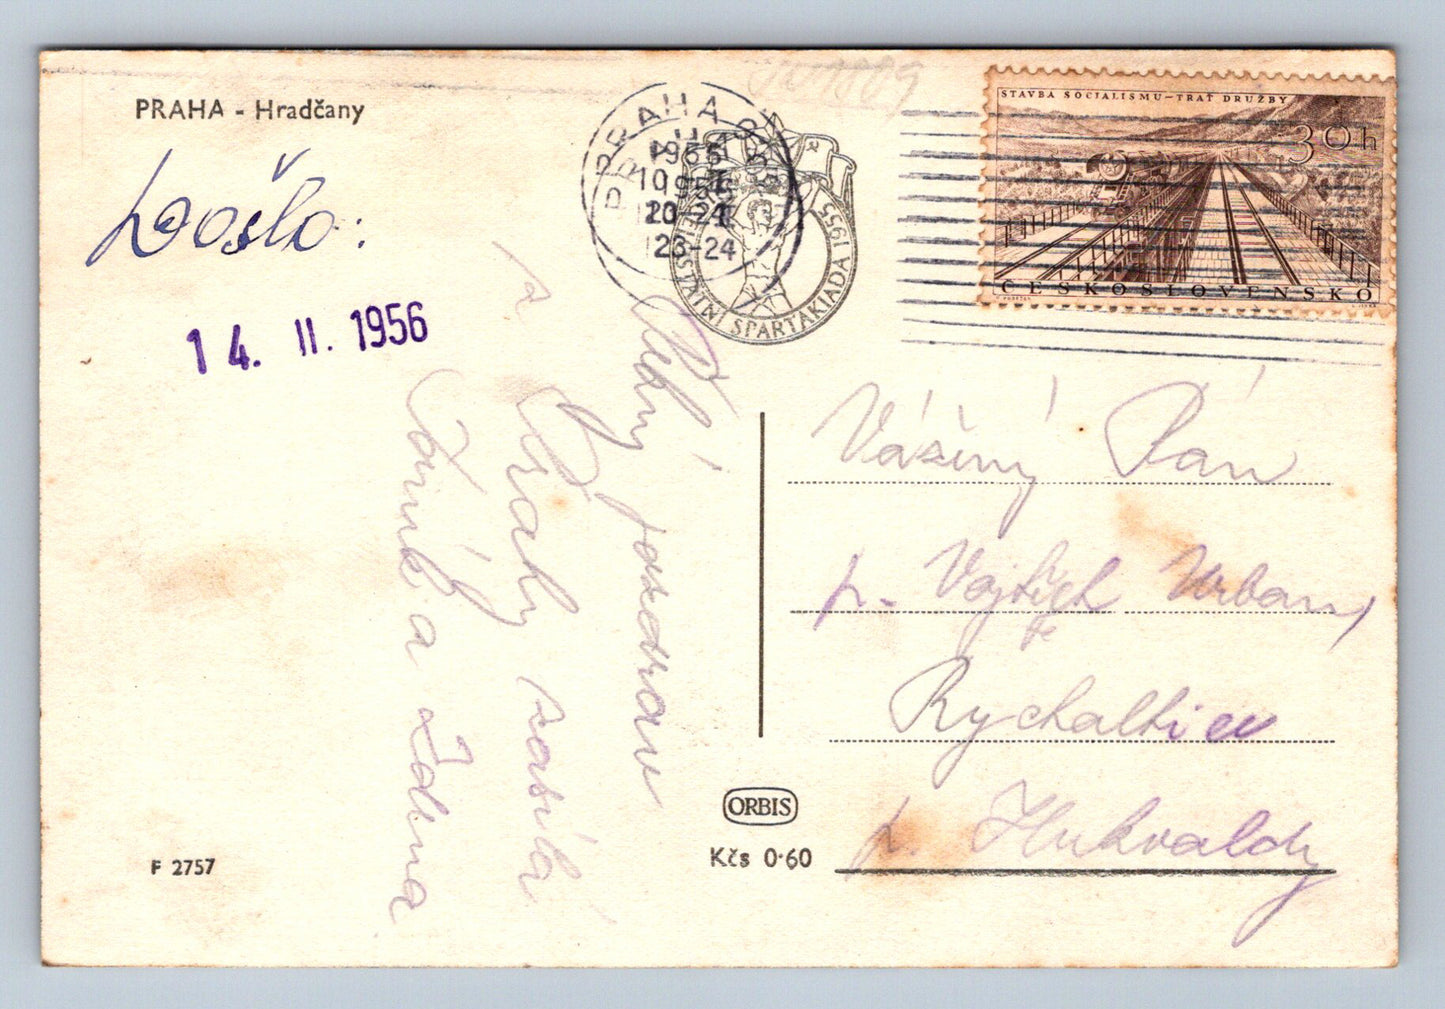 PRAHA - Hradčany
Došlo:
14. II. 1956
Pěkný pozdrav
z Prahy zasílá
a Zdena
F 2757
PRAHA
1955
10
20-21
23-24
CELOSTÁTNÍ SPARTAKIÁDA 1955
STAVBA SOCIALISMU - TRAŤ DRUŽBY
30h
ČESKOSLOVENSKO
Vážený Pán
p. Vojtěch Urban,
Rychaltice
p. Hukvaldy
ORBIS
Kčs 0·60